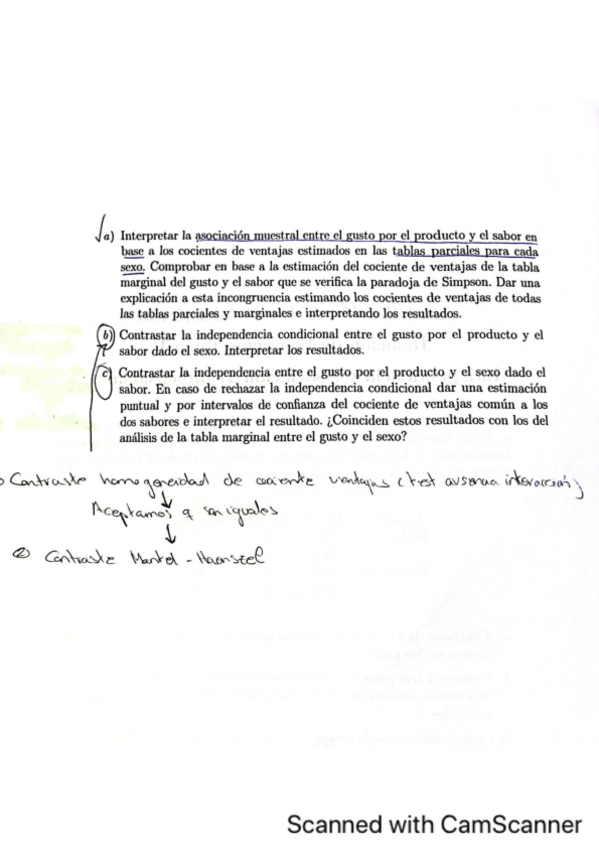 a) Interpretar la asociación muestral entre el gusto por el producto y el sabor en
base a los cocientes de ventajas estimados en las tablas parciales para cada
sexo. Comprobar en base a la estimación del cociente de ventajas de la tabla
marginal del gusto y el sabor que se verifica la paradoja de Simpson. Dar una
explicación a esta incongruencia estimando los cocientes de ventajas de todas
las tablas parciales y marginales e interpretando los resultados.
b) Contrastar la independencia condicional entre el gusto por el producto y el
sabor dado el sexo. Interpretar los resultados.
c) Contrastar la independencia entre el gusto por el producto y el sexo dado el
sabor. En caso de rechazar la independencia condicional dar una estimación
puntual y por intervalos de confianza del cociente de ventajas común a los
dos sabores e interpretar el resultado. ¿Coinciden estos resultados con los del
análisis de la tabla marginal entre el gusto y el sexo?
Contraste homogeneidad de cociente ventajas (test ausencia interacción)
Aceptamos q son iguales
② Contraste Mantel-Haenszel
Scanned with CamScanner